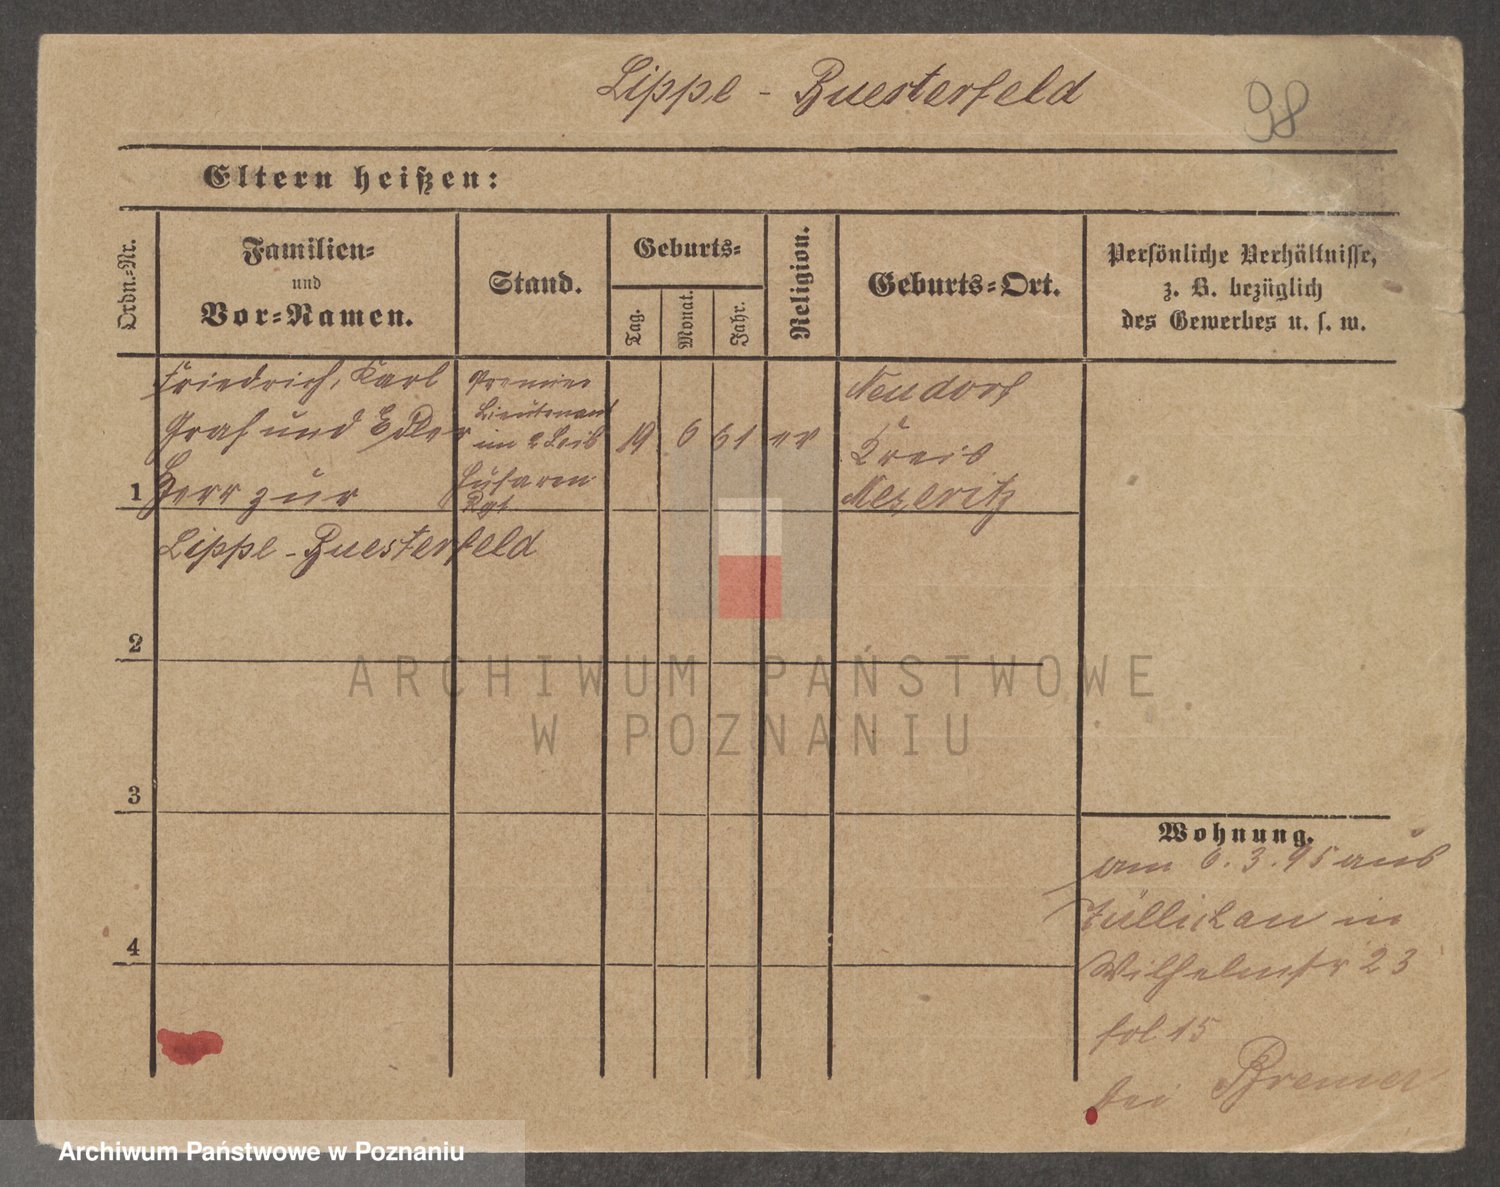 Lippe - Buesterfeld
98
Eltern heißen:
Ordn.=Nr.
Familien=
und
Vor=Namen.
Stand.
Geburts=
Tag.
Monat.
Jahr.
Religion.
Geburts=Ort.
Persönliche Verhältnisse,
z. B. bezüglich
des Gewerbes u. s. w.
1
Friedrich, Karl
Graf und Edler
Herr zur
Lippe - Buesterfeld
Premier
Lieutenant
im 2 Leib
Husaren
Rgt
19 6 61 ev
Neudorf
Kreis
Meseritz
2
3
4
Wohnung.
am 6.3.95 aus
Züllichau in
Wilhelmstr 23
fol 15
bei Bremer
ARCHIWUM PAŃSTWOWE
W POZNANIU
Archiwum Państwowe w Poznaniu